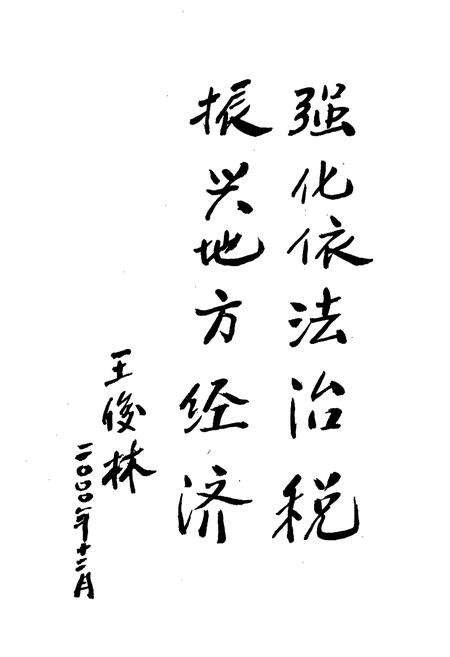 强化依法治税
振兴地方经济
王俊林
二〇〇〇年十二月